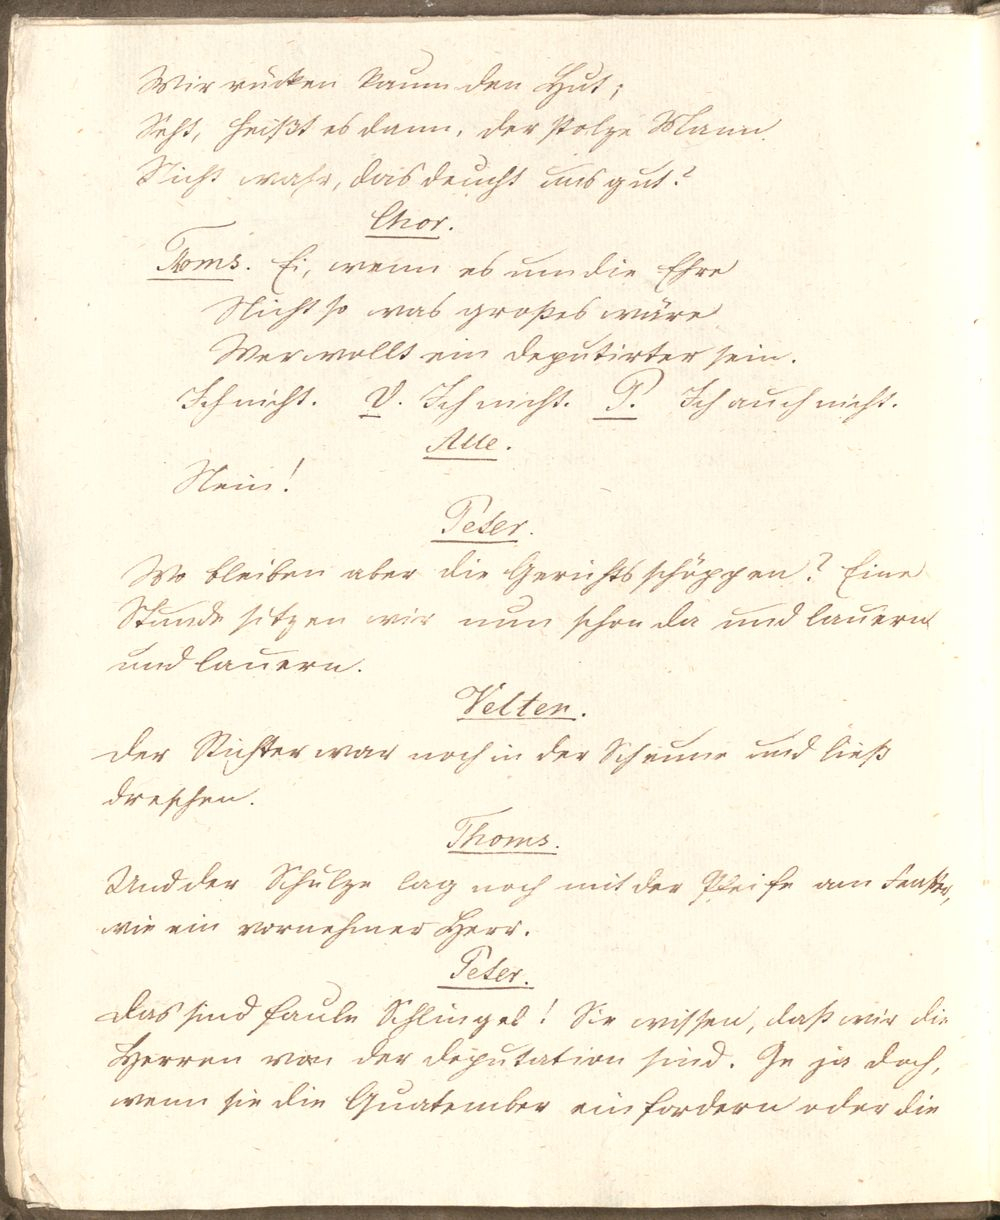 Wir rücken kaum den Hut;
Seht, heißt es dann, der stolze Mann.
Nicht wahr, das deucht uns gut?
Chor.
Toms. Ei, wenn es um die Ehre
Nicht so was großes wäre
Wer wollt ein Deputirter sein.
Ich nicht. V. Ich nicht. P. Ich auch nicht.
Alle.
Nein!
Peter.
Wo bleiben aber die Gerichtsschöppen? Eine
Stunde sitzen wir nun schon da und lauern
und lauern.
Velten.
Der Richter war noch in der Scheune und ließ
dreschen.
Thoms.
Und der Schulze lag noch mit der Pfeife am Fenster,
wie ein vornehmer Herr.
Peter.
Das sind faule Schlingel! Sie wissen, daß wir die
Herren von der Deputation sind. Je ja doch,
wenn sie die Quatember einfordern oder die